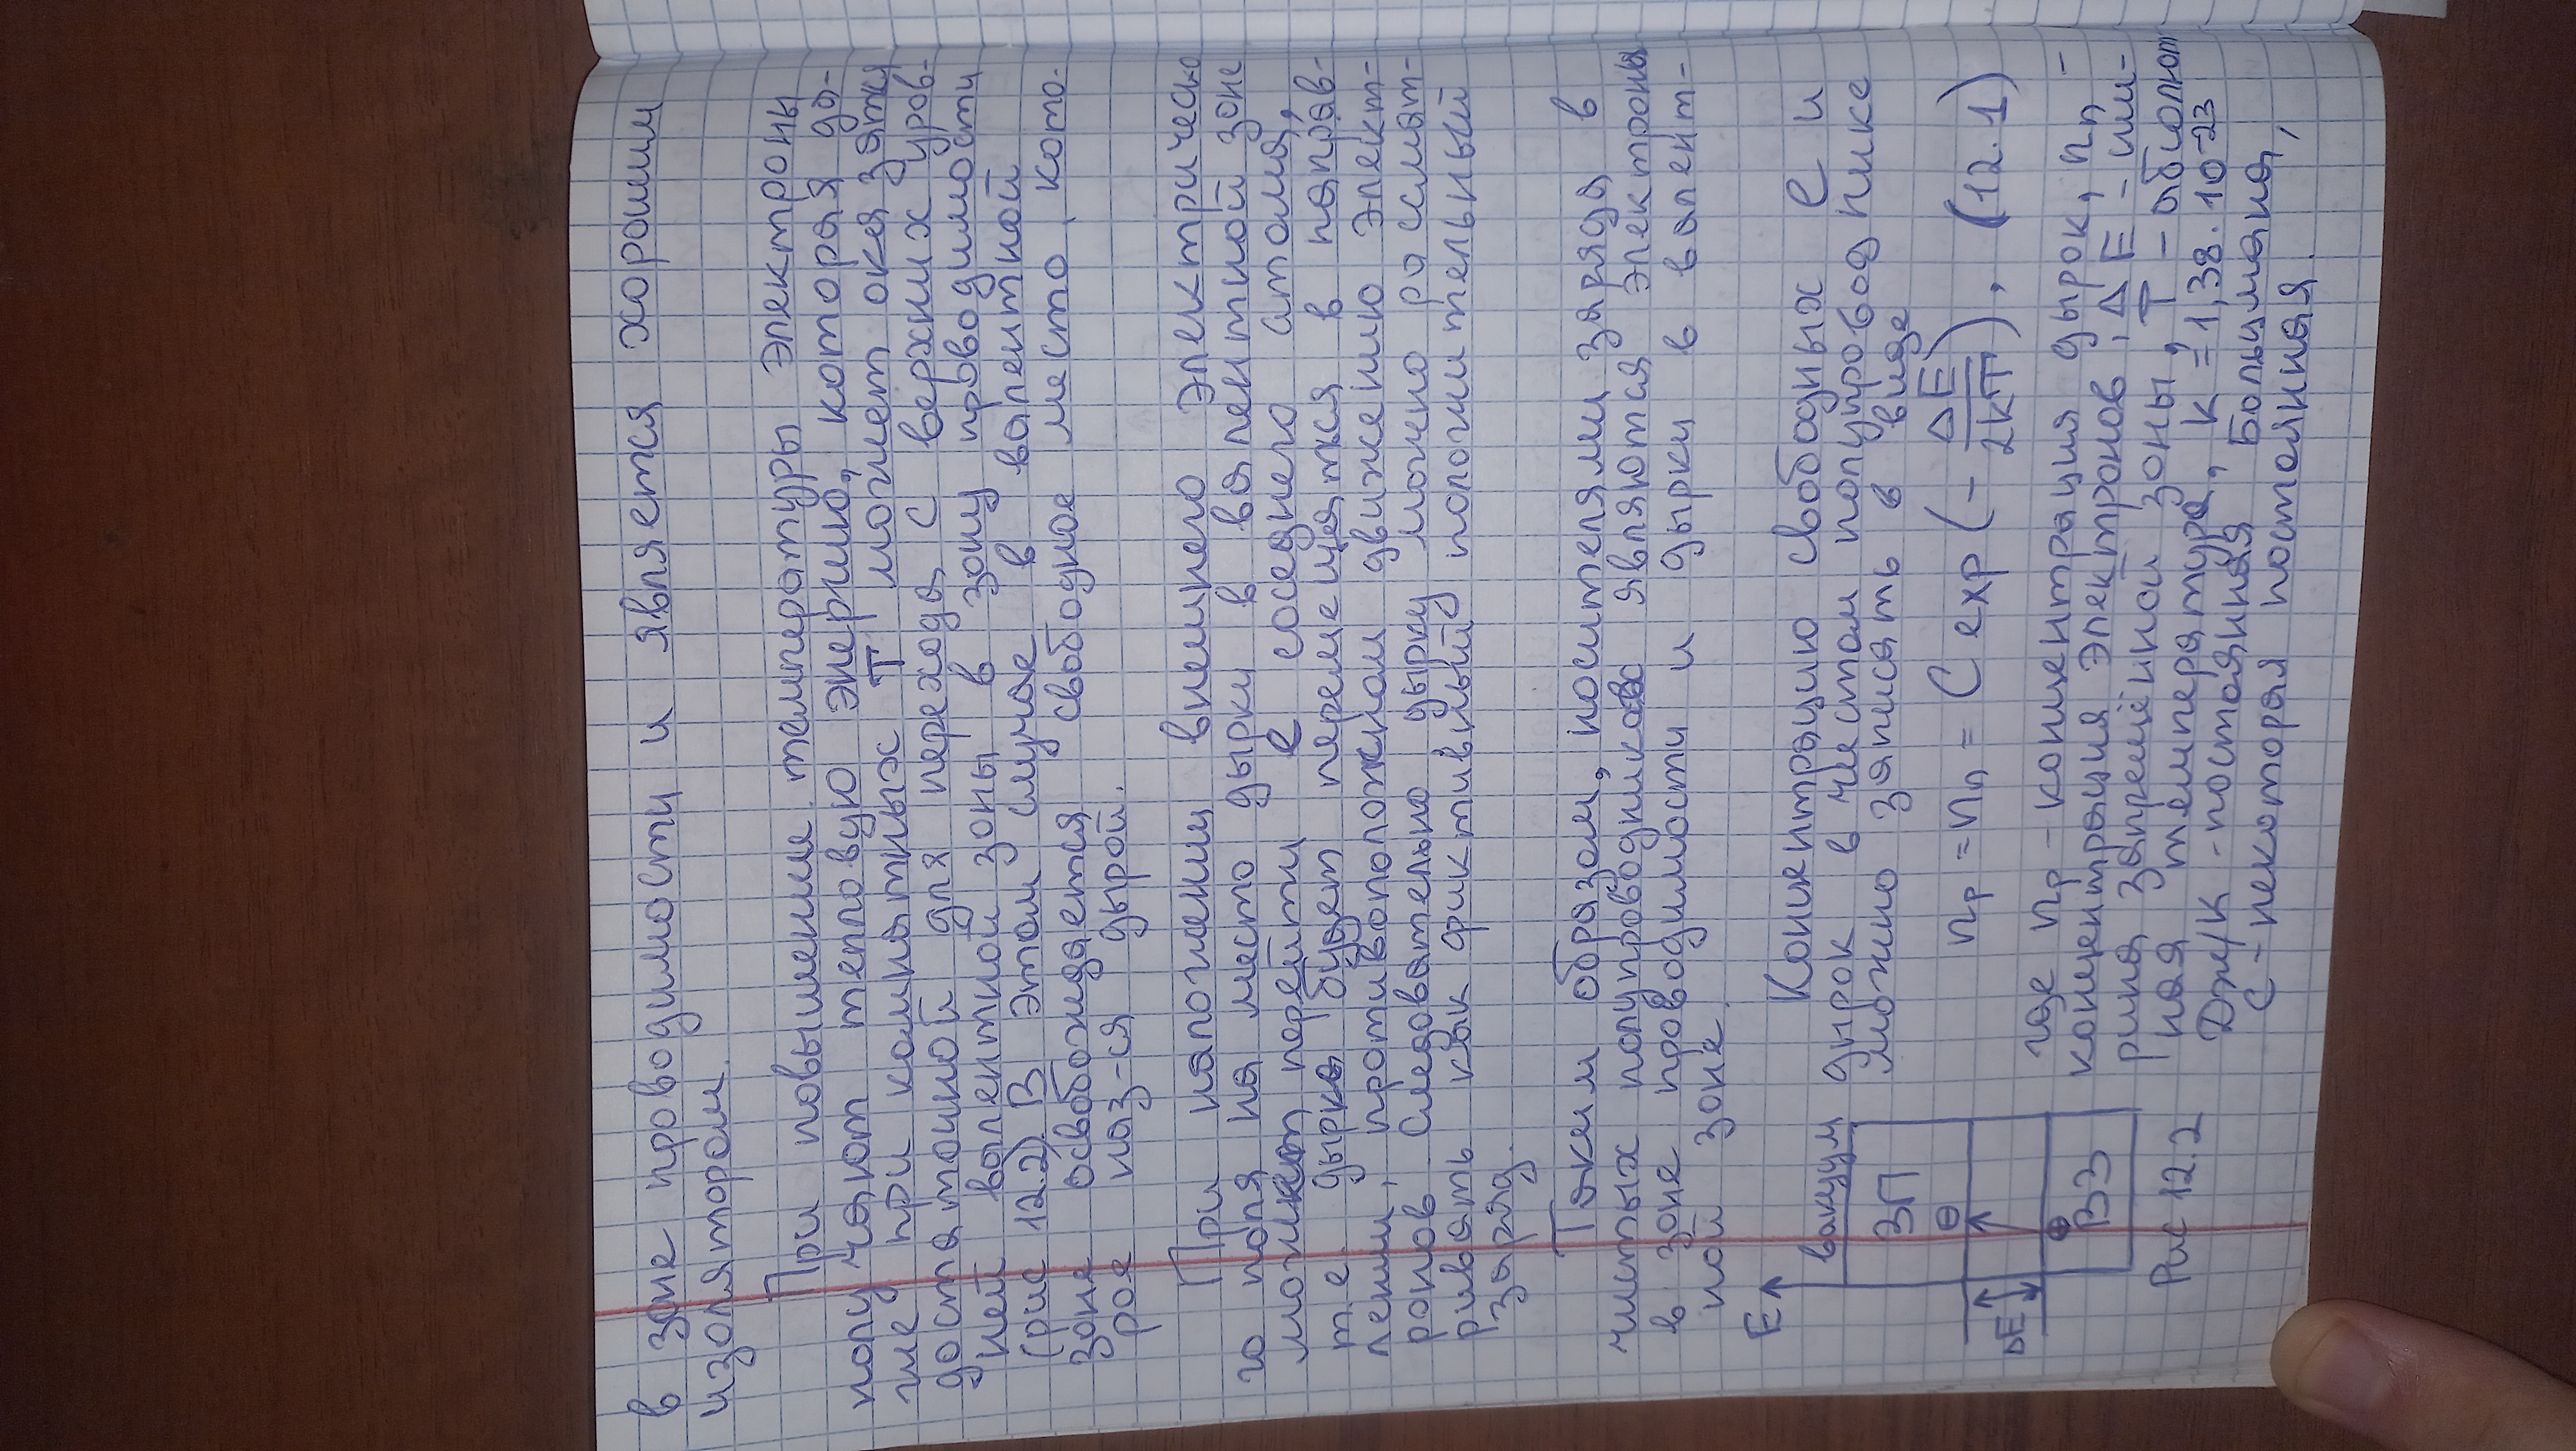 в зоне проводимости и является хорошим
изолятором.
При повышении температуры электроны
получают тепловую энергию, которая да-
же при комнатных T может оказатся
достаточной для перехода с верхних уров-
ней валентной зоны в зону проводимости
(рис 12.2). В этом случае в валентной
зоне освобождается свободное место, кото-
рое наз-ся дырой.
При наложении внешнего электрическо
го поля на место дырки в валентной зоне
может перейти e соседнего атома,
т.е. дырка будет перемещаться в направ-
лении, противоположном движению элект-
ронов. Следовательно, дырку можно рассмат-
ривать как фиктивный положительный
заряд.
Таким образом, носителями заряда в
чистых полупроводниках являются электроны
в зоне проводимости и дырки в валент-
ной зоне.
E
вакуум
ЗП
⊖
ΔE
⊕
ВЗ
Рис 12.2
Концентрацию свободных e и
дырок в чистом полупроводнике
можно записать в виде
np = nn = C exp (- ΔE/2kT), (12.1)
где np - концентрация дырок, nn -
концентрация электронов, ΔE - ши-
рина запрещённой зоны, T - абсолют
ная температура, k = 1,38 · 10⁻²³
Дж/К - постоянная Больцмана,
C - некоторая постоянная.